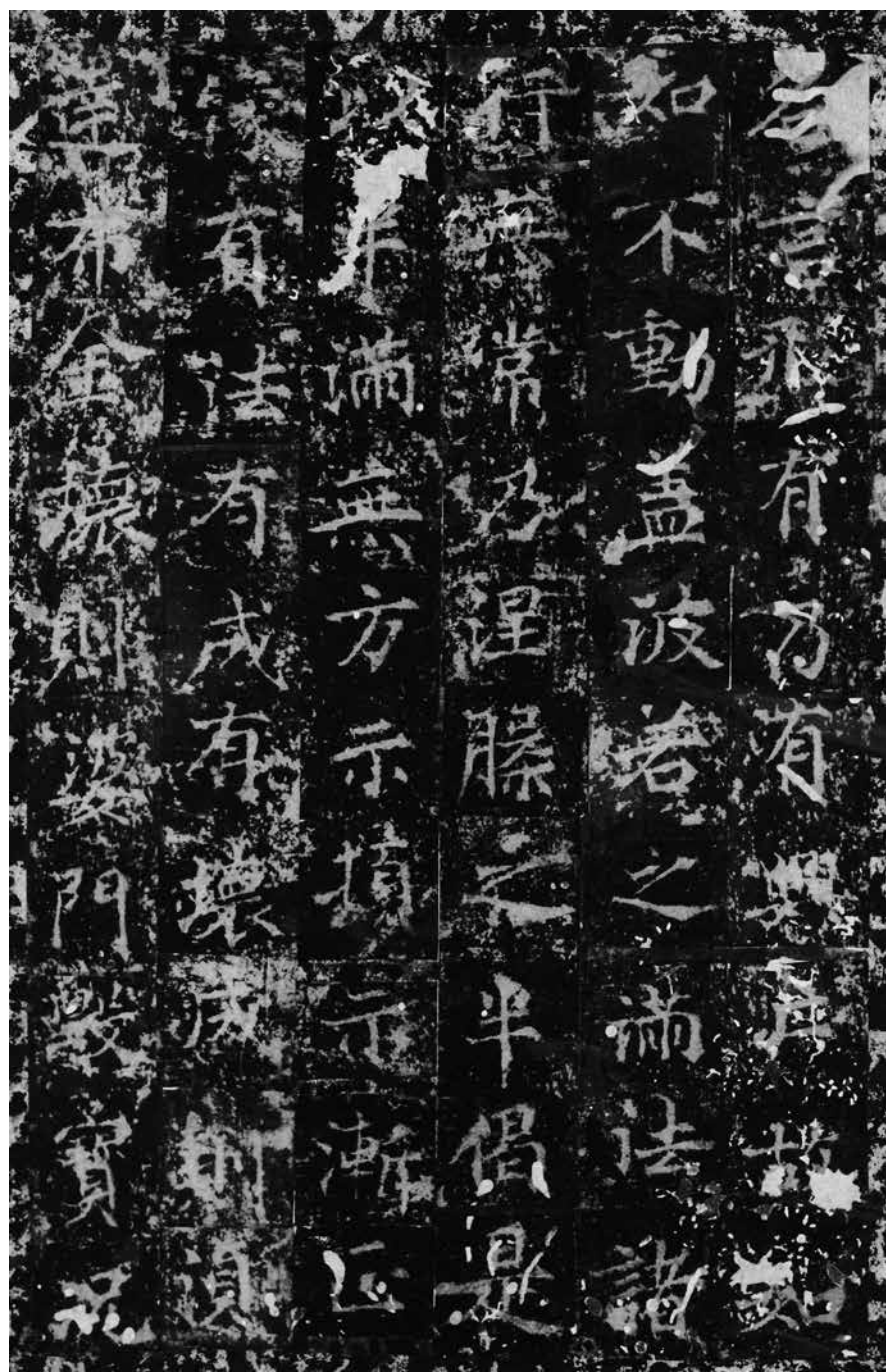 言有乃有如
如不動盖波若之滿法諸
行無常乃涅槃之半偈是
以半滿無方示頓示漸正
像有法有成有壞成則須
達布金壞則婆門毀寶